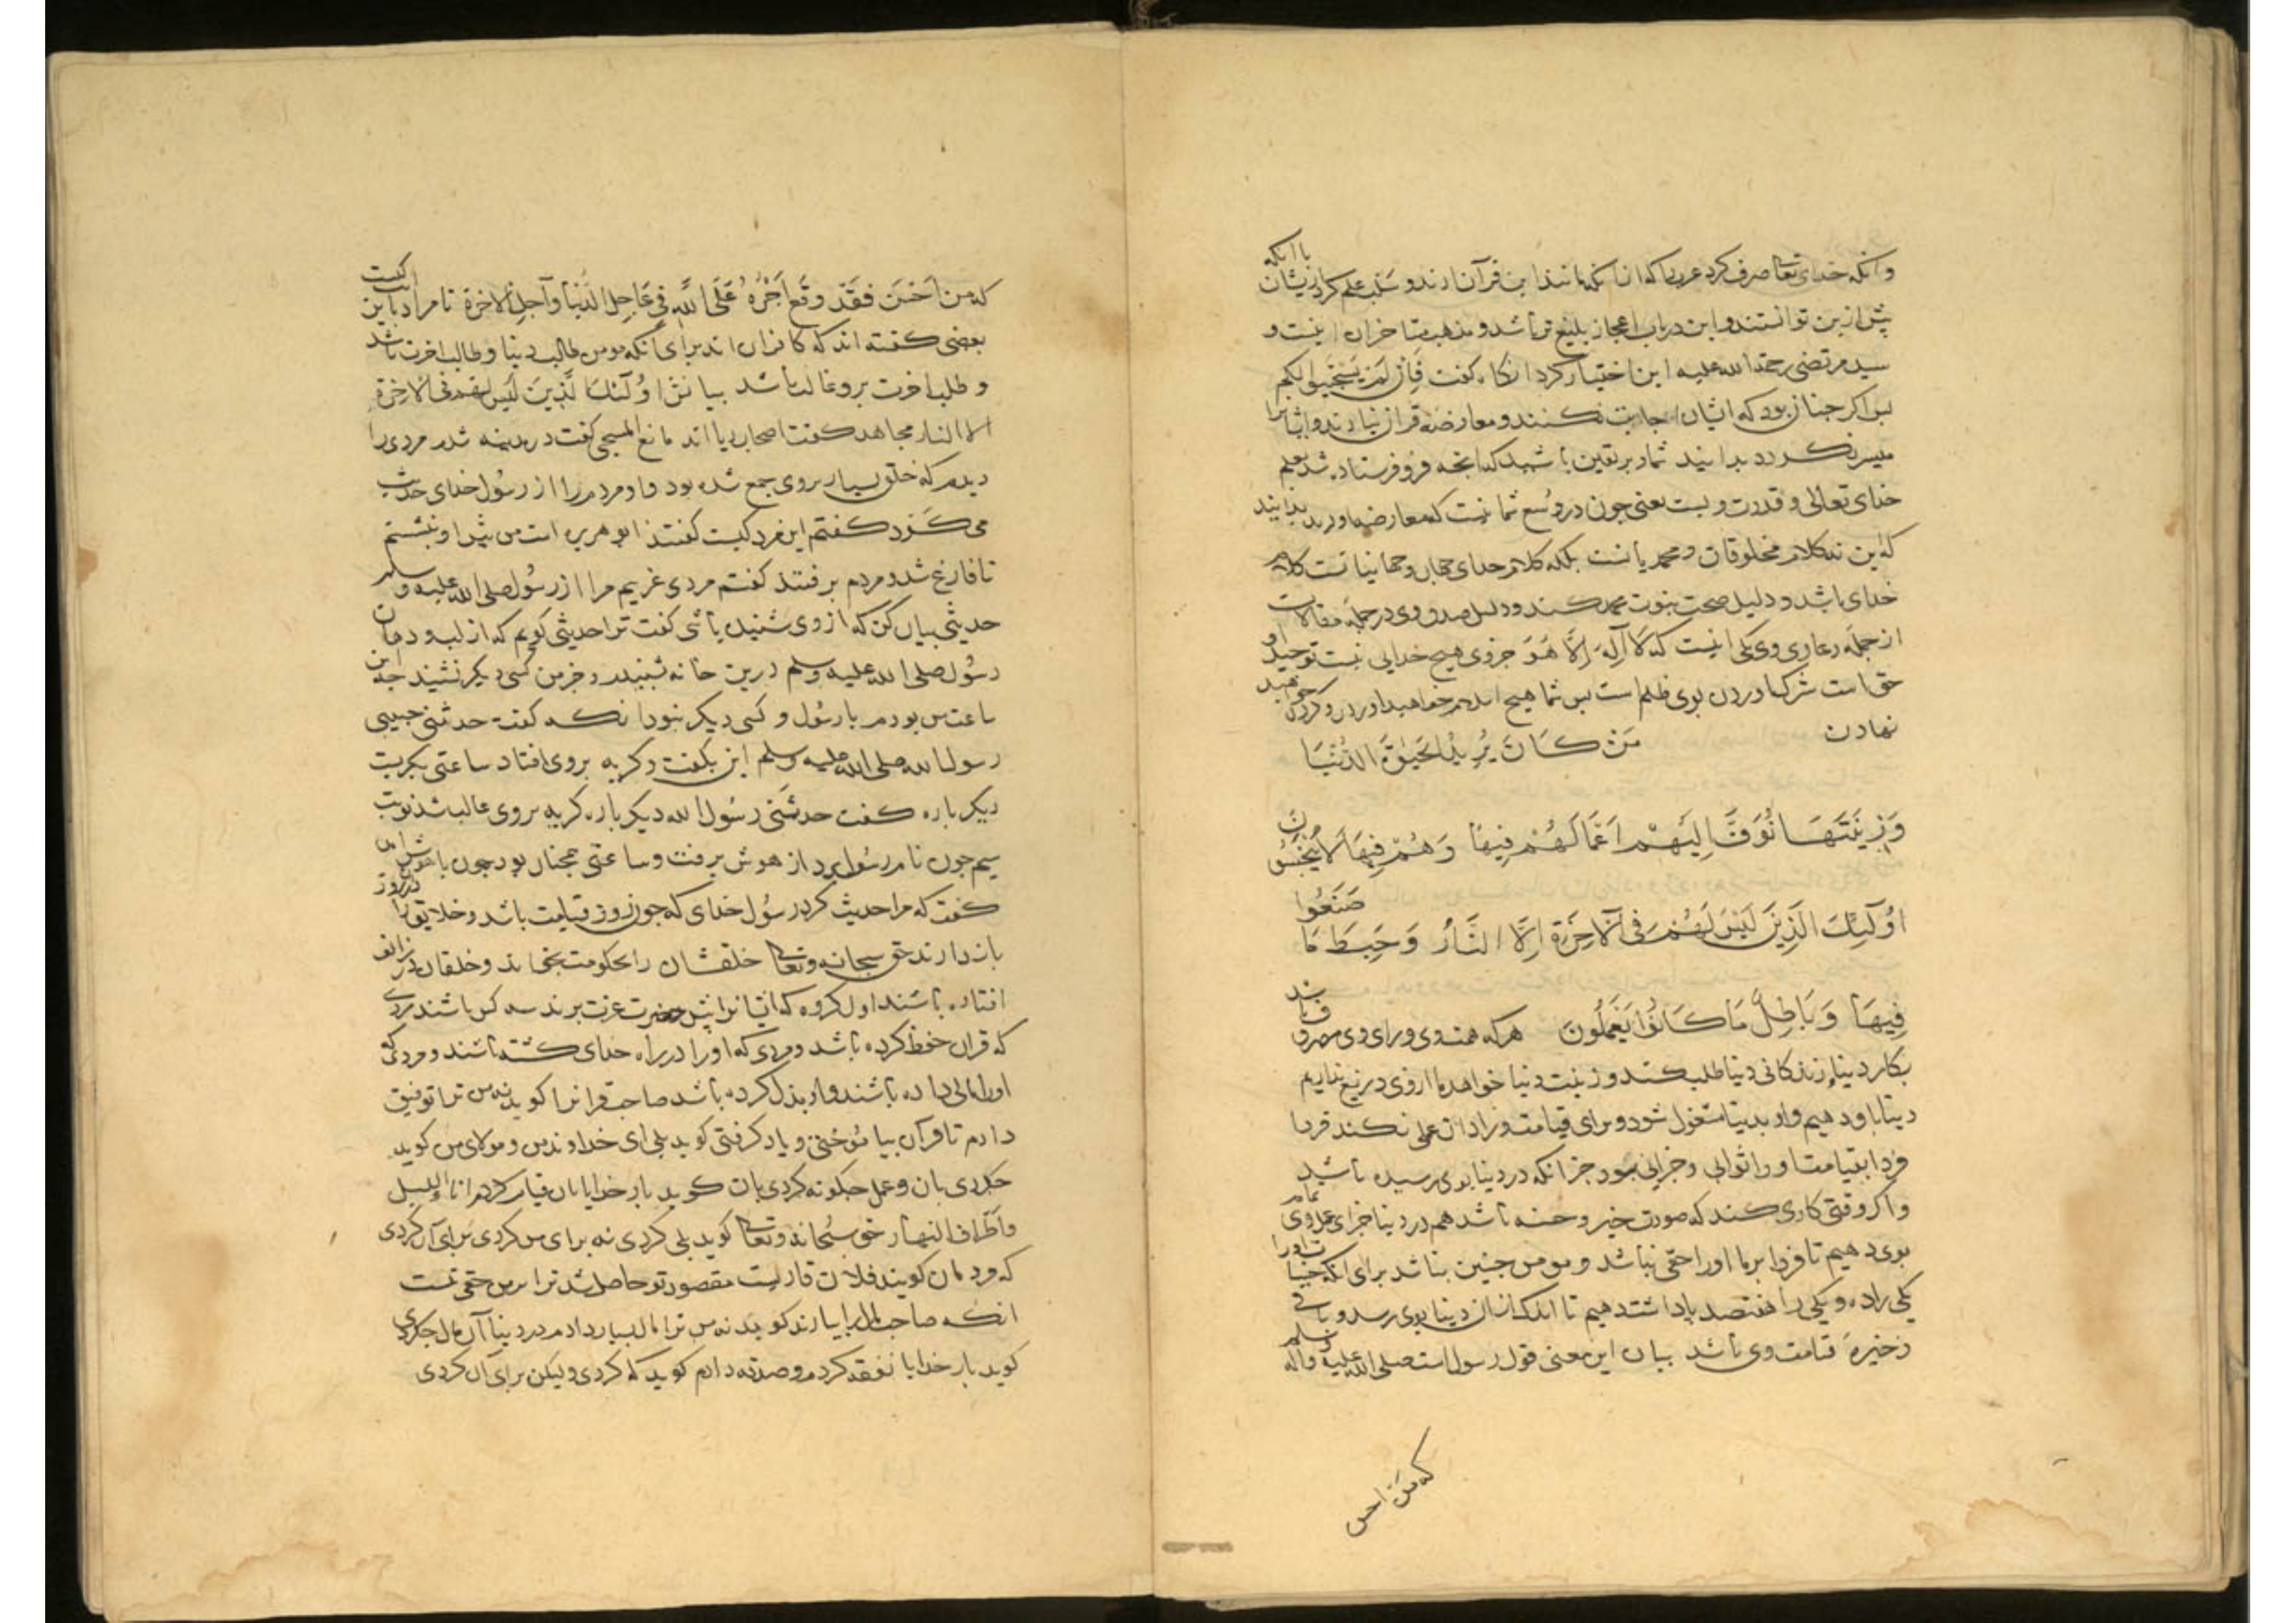 وانکه خدای تعا صرف کرد عرب را که انانکه مانند این قرآن ارند و سلب علم کرد ازیشان با انکه
پیش ازین توانستند و این در باب اعجاز بلیغ تر باشد و مذهب متاخران اینست و
سید مرتضی رحمة الله علیه این اختیار کرد انکاه کفت فَاِن لَم یَستَجیبوا لکم
بس اکر جنان بود که ایشان اجابت نکنند و معارضه قران نیارند و ایشانرا
میسر نکردد بدانید شما و بر یقین باشید که انجه فرو فرستاده شد بعلم
خدای تعالی و قدرت ویست یعنی جون در وُسع شما نیست که معارضه اورید بدانید
که این نه کلام مخلوقان و محمد یانست بلکه کلام خدای جهان و جهانیانست کلام
خدای باشد و دلیل صحت نبوت محمد کند و دلیل صدق وی در جمله مقالات
از جمله دعاوی وی یکی اینست که لا اله الا هو جز وی هیچ خدایی نیست توحید او
حق است شرک اوردن بوی ظلم است بس شما هیچ اسلام خواهید اورد و کردن خواهید
نهادن مَن کَانَ یُرِیدُ الحَیوةَ الدُّنیَا
وَزِینَتَهَا نُوَفِّ اِلَیهِم اَعمَالَهُم فِیهَا وَهُم فِیهَا لَا یُبخَسُونَ
اُولَٓئِکَ الَّذِینَ لَیسَ لَهُم فِی الٓاخِرَةِ اِلَّا النَّارُ وَحَبِطَ مَا صَنَعُوا
فِیهَا وَبَاطِلٌ مَا کَانُوا یَعمَلُونَ هرکه همت وی و رای وی مصروف باشد
بکار دینا و زندکانی دینا طلب کند و زینت دنیا خواهد ما ازوی دریغ نداریم
دینا باو دهیم و او بدینا مشغول شود و برای قیامت و زاد ان عملی نکند فردا
فردا بقیامت اورا ثوابی و جزایی نبود جز انکه در دینا بوی رسیده باشد
و اکر وقتی کاری کند که صورت خیر و حسنه باشد هم در دینا جزای عمل وی تمام
بوی دهیم تا فردا برما اورا حقی نباشد و مومن جنین نباشد برای انکه حسنات اورا
یکی را ده و یکی را هفتصد باداشت دهیم تا اندک ازان دینا بوی رسد و باقی
ذخیره قیامت وی باشد بیان این معنی قول رسول است صلی الله علیه واله وسلم
که من احسن
که من اَحسَنَ فَقَد وَقَعَ اَجرُهُ عَلَی اللهِ فی عَاجِلِ الدُّنیا وآجِلِ الاخرة تا مراد باین ایت کیست
بعضی کفته اند که کافران اند برای آنکه مومن طالب دینا و طالب اخرت باشد
و طلب اخرت برو غالب باشد بیانش اُولَئکَ الَّذِینَ لَیسَ لهم فی الاخِرَة
الا النار مجاهد کفت اصحاب ریا اند مانع المسیحی کفت در مدینه شدم مردی را
دیدم که خلق بسیار بروی جمع شده بود و او مردم را از رسول خدای حدیث
می کرد کفتم این مرد کیست کفتند ابو هریره است من بیش او بنشستم
تا فارغ شد و مردم برفتند کفتم مردی غریبم مرا از رسول صلی الله علیه وسلم
حدیثی بیان کن که از وی شنیده باشی کفت ترا حدیثی کویم که از لب و دهان
رسُول صلی الله علیه وسلم درین خانه شنیدم و جز من کسی دیکر نشنید جه این
ساعت من بودم با رسول و کسی دیکر نبود انکه کفت حدثنی حبیبی
رسول الله صلی الله علیه وسلم این بکفت و کریه بروی افتاد ساعتی بکریست
دیکر باره کفت حدثنی رسول الله دیکر باره کریه بروی غالب شد نوبت
سیم جون نام رسول برد از هوش برفت و ساعتی همجنان بود جون باهوش امد
کفت که مرا حدیث کرد رسول خدای که جون روز قیامت باشد و خلایق را دران روز
باز دارند حق سبحانه وتعا خلقشان را بحکومت بخواند و خلقان در زانو
افتاده باشند اول کروه که ایشانرا بیش حضرت عزت برند سه کس باشند مردی
که قران حفظ کرده باشد و مردی که اورا در راه خدای کشته باشند و مردی که
اورا مالی داده باشند و او بذل کرده باشد صاحب قرانرا کوید نه من ترا توفیق
دادم تا قرآن بیاموختی و یاد کرفتی کوید بلی ای خداوند من و مولای من کوید
جه کردی بان و عمل جکونه کردی بان کوید بار خدایا بان قیام کردم اناء اللیل
واطراف النهار حق سُبحانه وتعا کوید بلی کردی نه برای من کردی برای آن کردی
که مردمان کویند فلان قاریست مقصود تو حاصل شد ترا برمن حقی نیست
انکه صاحب مال را بیارند کوید نه من ترا مال بسیار دادم در دینا آن مال جه کردی
کوید بار خدایا نفقه کردم و صدقه دادم کوید که کردی ولیکن برای آن کردی